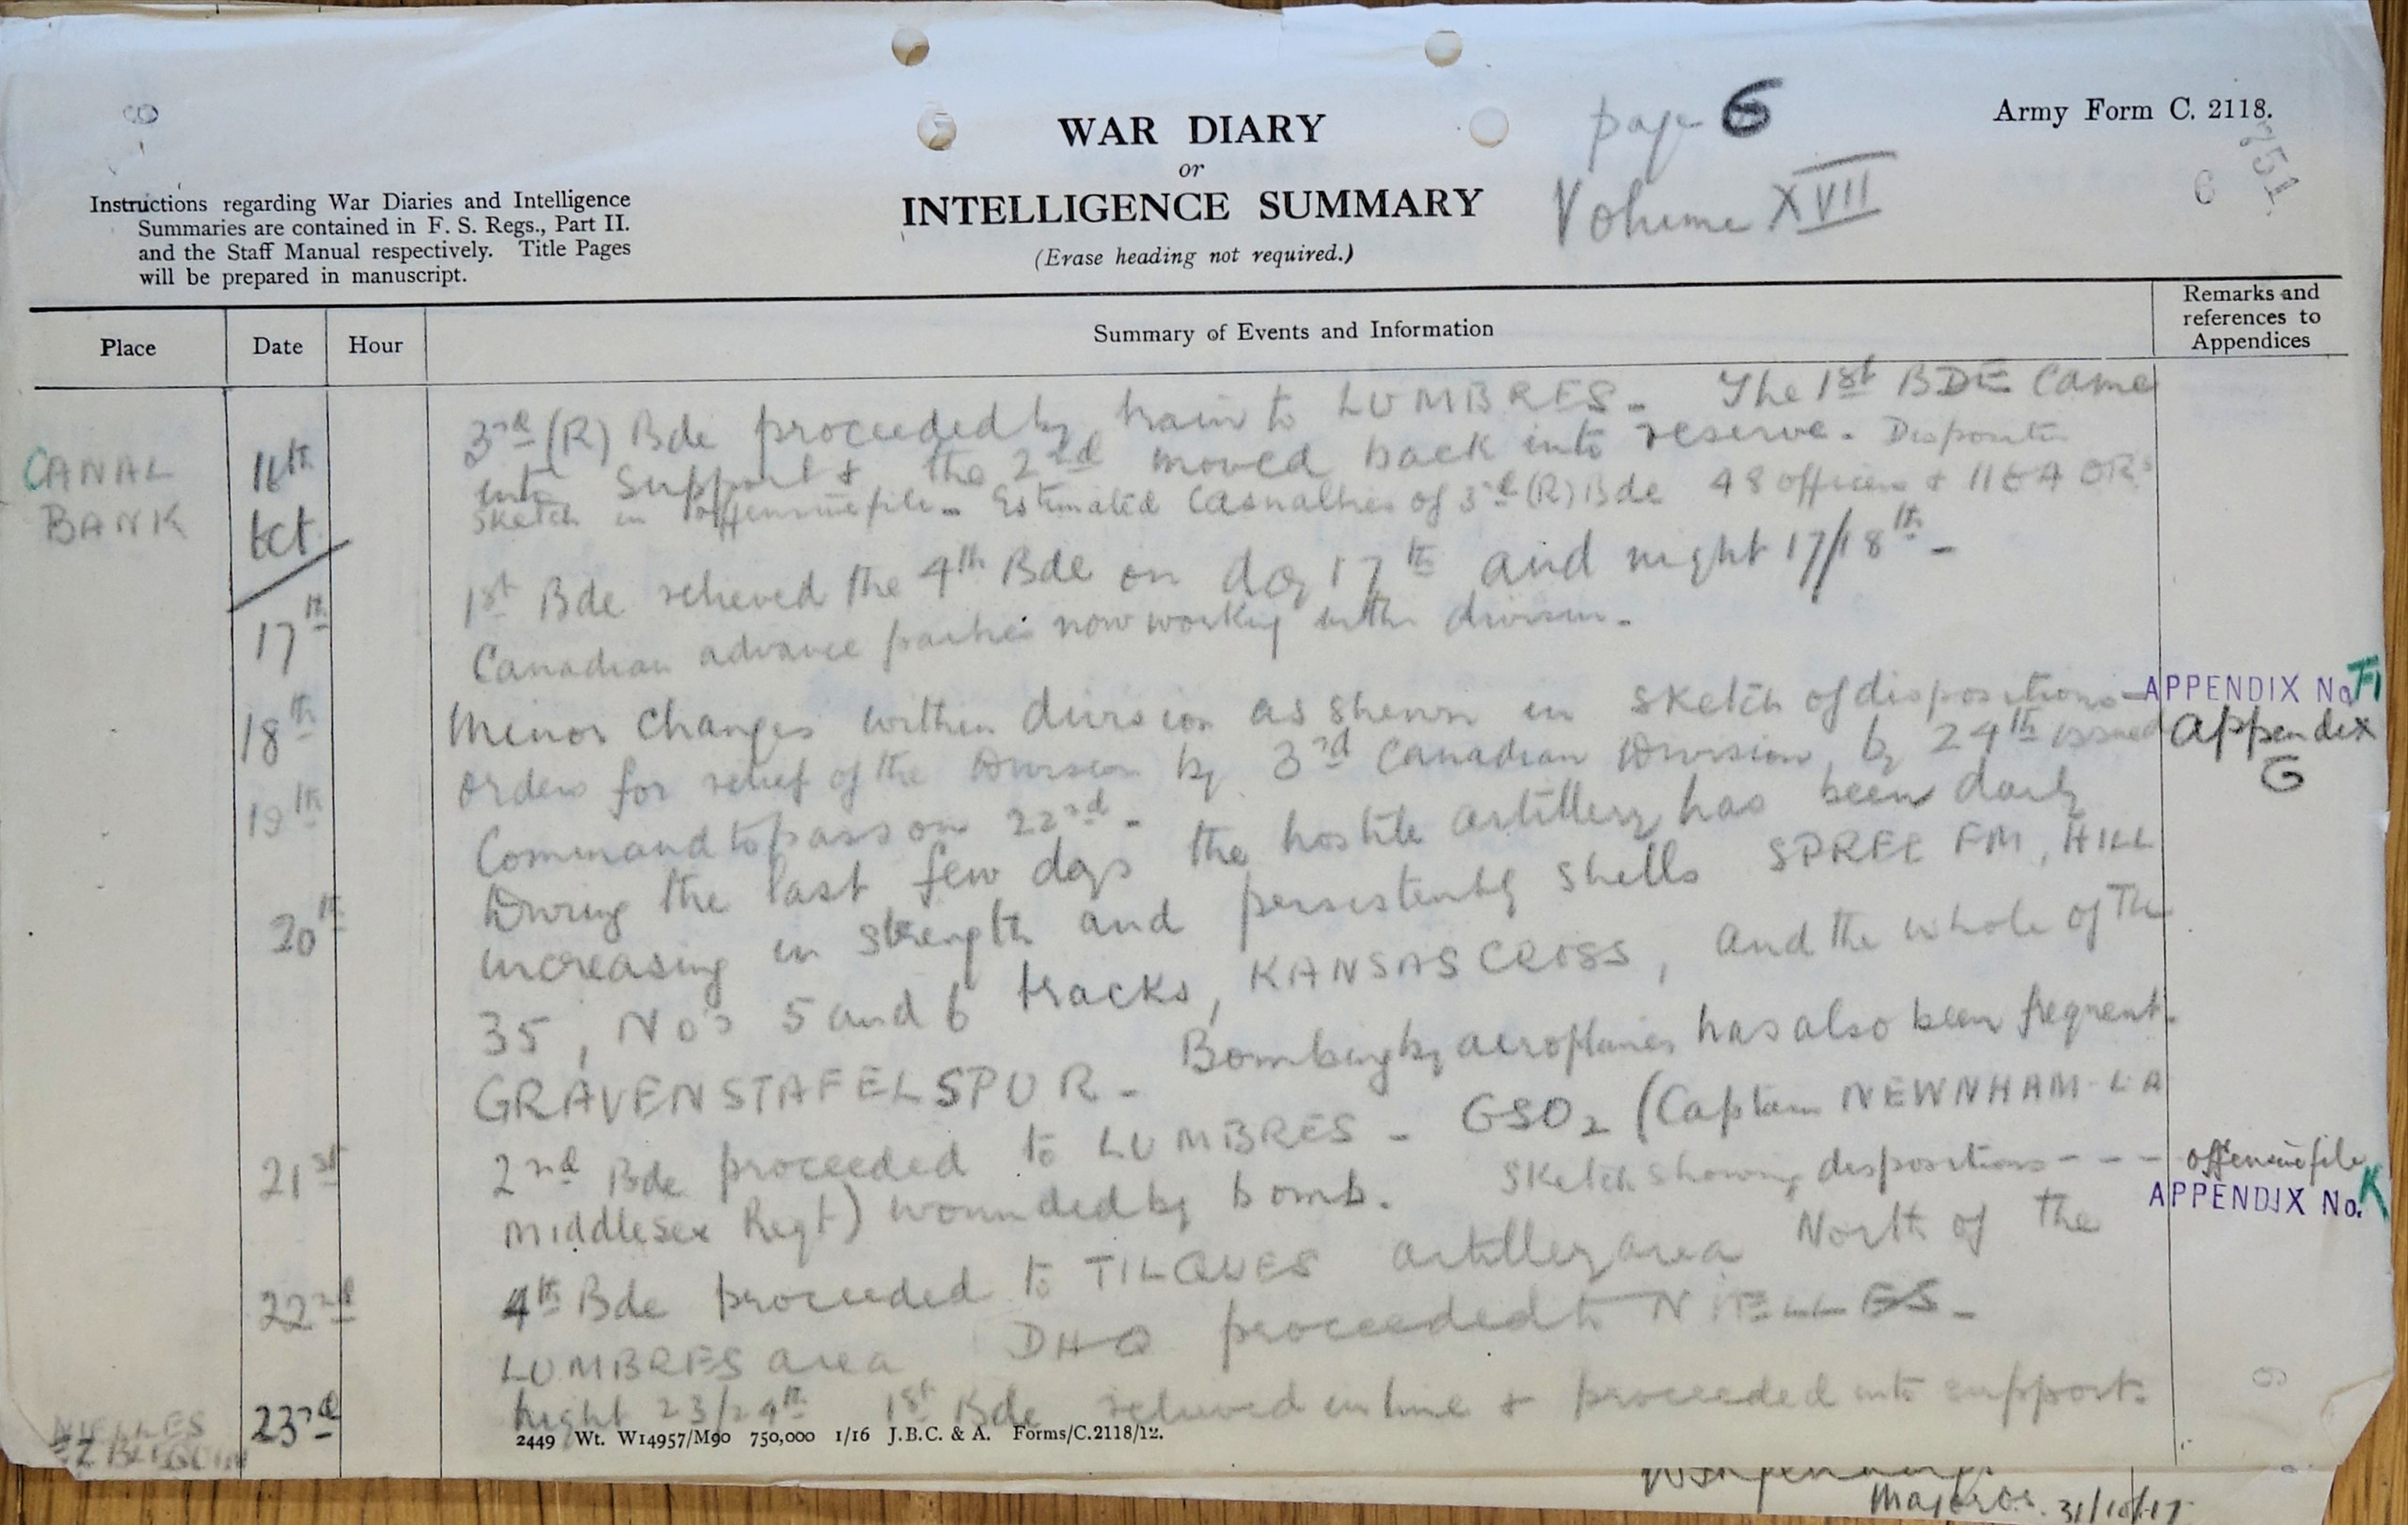 page 6
Army Form C. 2118.
WAR DIARY
or
INTELLIGENCE SUMMARY
(Erase heading not required.)
Volume XVII
6
251
Instructions regarding War Diaries and Intelligence
Summaries are contained in F. S. Regs., Part II.
and the Staff Manual respectively. Title Pages
will be prepared in manuscript.
Place
Date
Hour
Summary of Events and Information
Remarks and
references to
Appendices
CANAL
BANK
16th
Oct
3rd (R) Bde proceeded by train to LUMBRES - The 1st BDE came
into Support & the 2nd moved back into reserve. Disposition
sketch in offensive file - Estimated Casualties of 3rd (R) Bde 48 officers & 1164 ORs
17th
1st Bde relieved the 4th Bde on day 17th and night 17/18th -
Canadian advance parties now working with division.
18th
Minor changes within division as shewn in sketch of dispositions -
APPENDIX No. F1
19th
Orders for relief of the Division by 3rd Canadian Division by 24th issued
Appendix
G
Command to pass on 22nd -
20th
During the last few days the hostile artillery has been daily
increasing in strength and persistently shells SPREE FM, HILL
35, No's 5 and 6 tracks, KANSAS CROSS, and the whole of the
GRAVENSTAFEL SPUR - Bombing by aeroplanes has also been frequent.
21st
2nd Bde proceeded to LUMBRES - GSO2 (Captain NEWNHAM LA
Middlesex Regt) wounded by bomb. Sketch showing dispositions - - -
offensive file
APPENDIX No. K
22nd
4th Bde proceeded to TILQUES artillery area North of the
LUMBRES area DHQ proceeded to NIELLES -
NIELLES
23rd
Night 23/24th 1st Bde relieved in line & proceeded into support.
2449 Wt. W14957/M90 750,000 1/16 J.B.C. & A. Forms/C.2118/12.
Major GS. 31/10/17